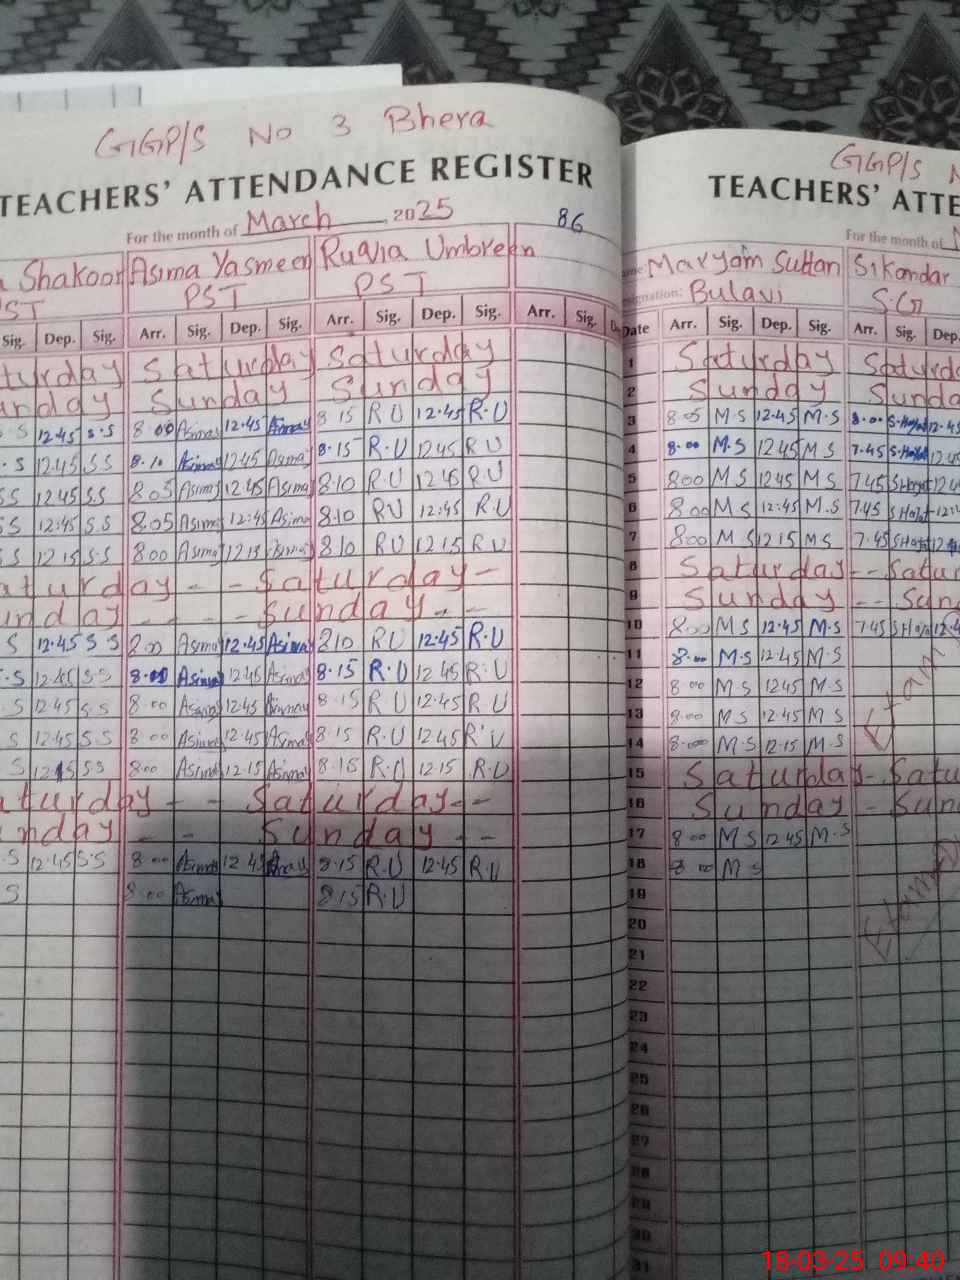 GGP/S No 3 Bhera
TEACHERS' ATTENDANCE REGISTER
For the month of March 2025 86
Shakoor Asima Yasmeen Ruqia Umbreen
PST PST PST
Sig. Dep. Sig. Arr. Sig. Dep. Sig. Arr. Sig. Dep. Sig. Arr. Sig.
Saturday Saturday
Sunday Sunday
S 12.45 S.S 8.00 Asima 12.45 Asima 8.15 R.U 12.45 R.U
.S 12.45 S.S 8.10 Asima 12.45 Asima 8.15 R.U 12.45 R U
SS 12.45 S.S 8.05 Asima 12.45 Asima 8.10 R.U 12.45 R.U
SS 12:45 S.S 8.05 Asima 12:45 Asima 8.10 RU 12:45 R.U
S 12.15 S.S 8.00 Asima 12.15 Asima 8.10 RU 12.15 R U
aturday - - Saturday -
unday - - - Sunday - -
S 12.45 S S 8.00 Asima 12.45 Asima 8.10 RU 12.45 R.U
.S 12.45 S.S 8.00 Asima 12.45 Asima 8.15 R.U 12.45 R.U
S 12.45 S.S 8.00 Asima 12.45 Asima 8.15 R U 12.45 R U
S 12.45 S S 8.00 Asima 12.45 Asima 8.15 R.U 12.45 R U
S 12.15 S S 8.00 Asima 12.15 Asima 8.15 R.U 12.15 R.U
aturday - - Saturday - -
nday - - Sunday - -
.S 12.45 S.S 8.00 Asima 12.45 8.15 R.U 12.45 R.U
S 8.00 Asima 8.15 R.U
GGP/S
TEACHERS' ATTE
For the month of
Maryam Sultan Sikandar
signation: Bulavi S.G
Date Arr. Sig. Dep. Sig. Arr. Sig. Dep.
1 Saturday Saturd
2 Sunday Sunda
3 8.05 M.S 12.45 M.S 8.00 S.Hayat 12.45
4 8.00 M.S 12.45 M S 7.45 S.Hayat 12.45
5 8.00 M S 12.45 M S 7.45 S Hayat 12.4
6 8.00 M S 12:45 M.S 7.45 S Hayat 12:
7 8:00 M S 12.15 M S 7.45 S Hayat 12
8 Saturday - - Satur
9 Sunday - - Sun
10 8.00 M S 12.45 M.S 7.45 S Hayat 12.4
11 8.00 M.S 12.45 M.S
12 8.00 M.S 12.45 M.S
13 8.00 M S 12.45 M S
14 8.00 M S 12.15 M.S
15 Saturday - Satu
16 Sunday - Sun
17 8.00 M S 12.45 M.S
18 8.00 M S
19
20
21
22
23
24
25
26
27
28
29
30
31
18-03-25 09:40